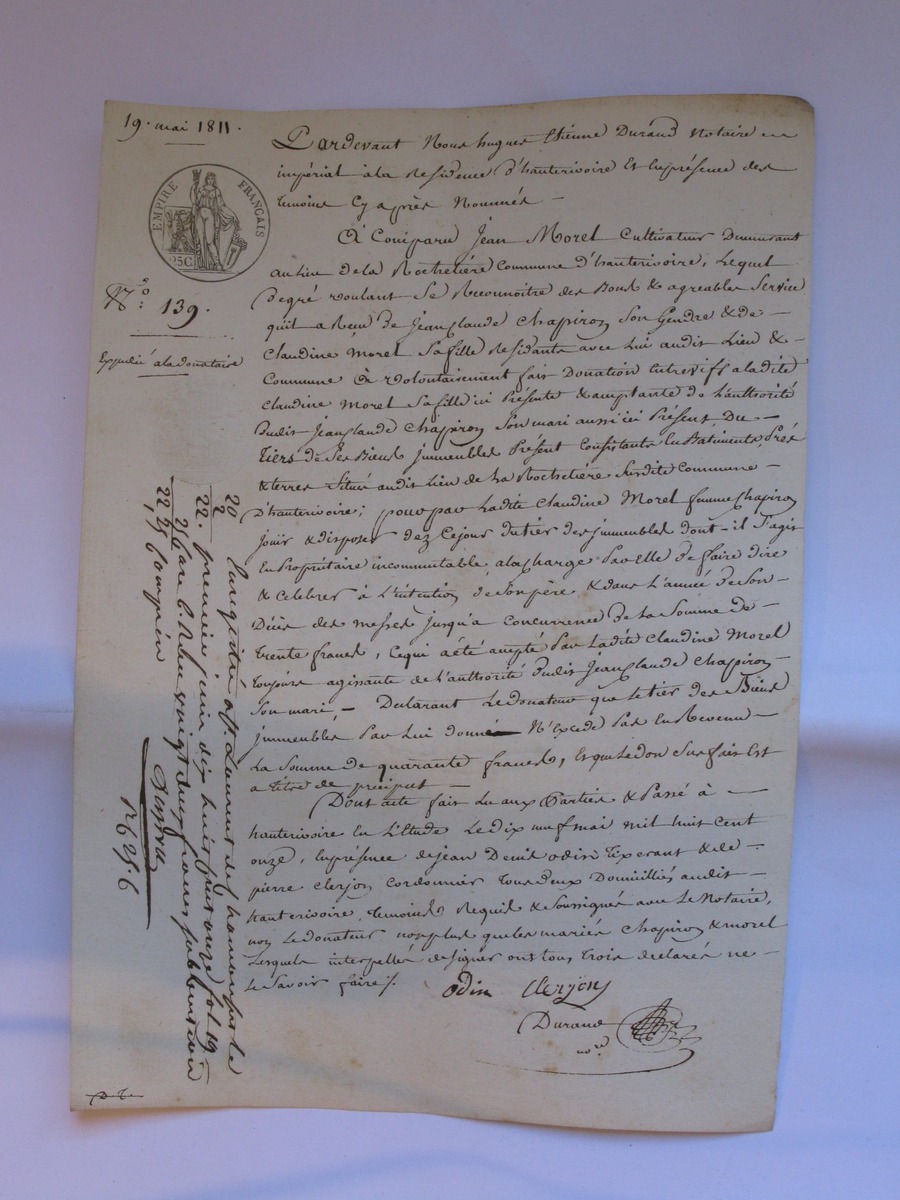 19. mai 1811.
EMPIRE FRANÇAIS
25 C.
N.º 139.
Expedié à la donataire
Pardevant Nous hugues Etienne Durand Notaire
impérial à la Residence d'hauterivoire Et En présence des
temoins Cy après Nommés —
A Comparu Jean Morel Cultivateur Demeurant
au lieu de la Rochetière Commune d'hauterivoire, Lequel
de gré voulant Se Reconnoitre des Bons & agreables Service
qu'il a Reçu de Jean Claude Chapiron Son Gendre & de —
Claudine Morel Sa fille Residants avec Lui audit Lieu & —
Commune A volontairement fait Donation Entrevifs a ladite
Claudine Morel Sa fille ici Présente & acceptante de L'autthorité
Dudit Jean Claude Chapiron Son mari aussi ici Présent, Du —
Tiers de Ses Biens jmmeubles Présent Consistants En Batiments, Prés
& terres Situés audit Lieu de La Rochetière Susdite Commune —
d'hauterivoire; pour par Ladite Claudine Morel femme Chapiron
jouir & disposer dez Ce jour du tier des jmmeubles dont il S'agit
En Propriétaire incommutable, a la Charge Par elle de faire dire
& Celebrer à L'intention de Son père & dans L'année de Son —
Décès des messes jusqu'a Concurrence De La Somme de —
trente francs, Ce qui a été accepté Par Ladite Claudine Morel
toujours agissante de L'autthorité Dudit Jean Claude Chapiron —
Son mari, — Declarant Le donateur que Le tier des Biens
jmmeubles Par Lui donné — N'Excede Pas En Revenu —
La Somme de quarante francs, Et que Le don Sus fait Est
a titre de préciput —
Dont acte fait Lu aux Parties & Passé à —
hauterivoire En L'Etude Le dix neuf mai mil huit Cent
onze, En présence de jean Denis odin tixerant & de —
pierre Clerjon Cordonnier tous deux Domiciliés audit —
hauterivoire, temoins Requis & Soussignés avec Le Notaire,
non Le donateur non plus que les mariés Chapiron & morel
Lesquels interpellés de signer ont tous trois declarés ne —
Le Savoir faire /.
odin Clerjon
Durand
no.re
20
2
22.
22 25 6
Enregistré a St. Laurent de Chamousset le
premier juin dix huit cent onze fol. 19
reçu vingt deux francs
25 6 compris
P 6 25. 6